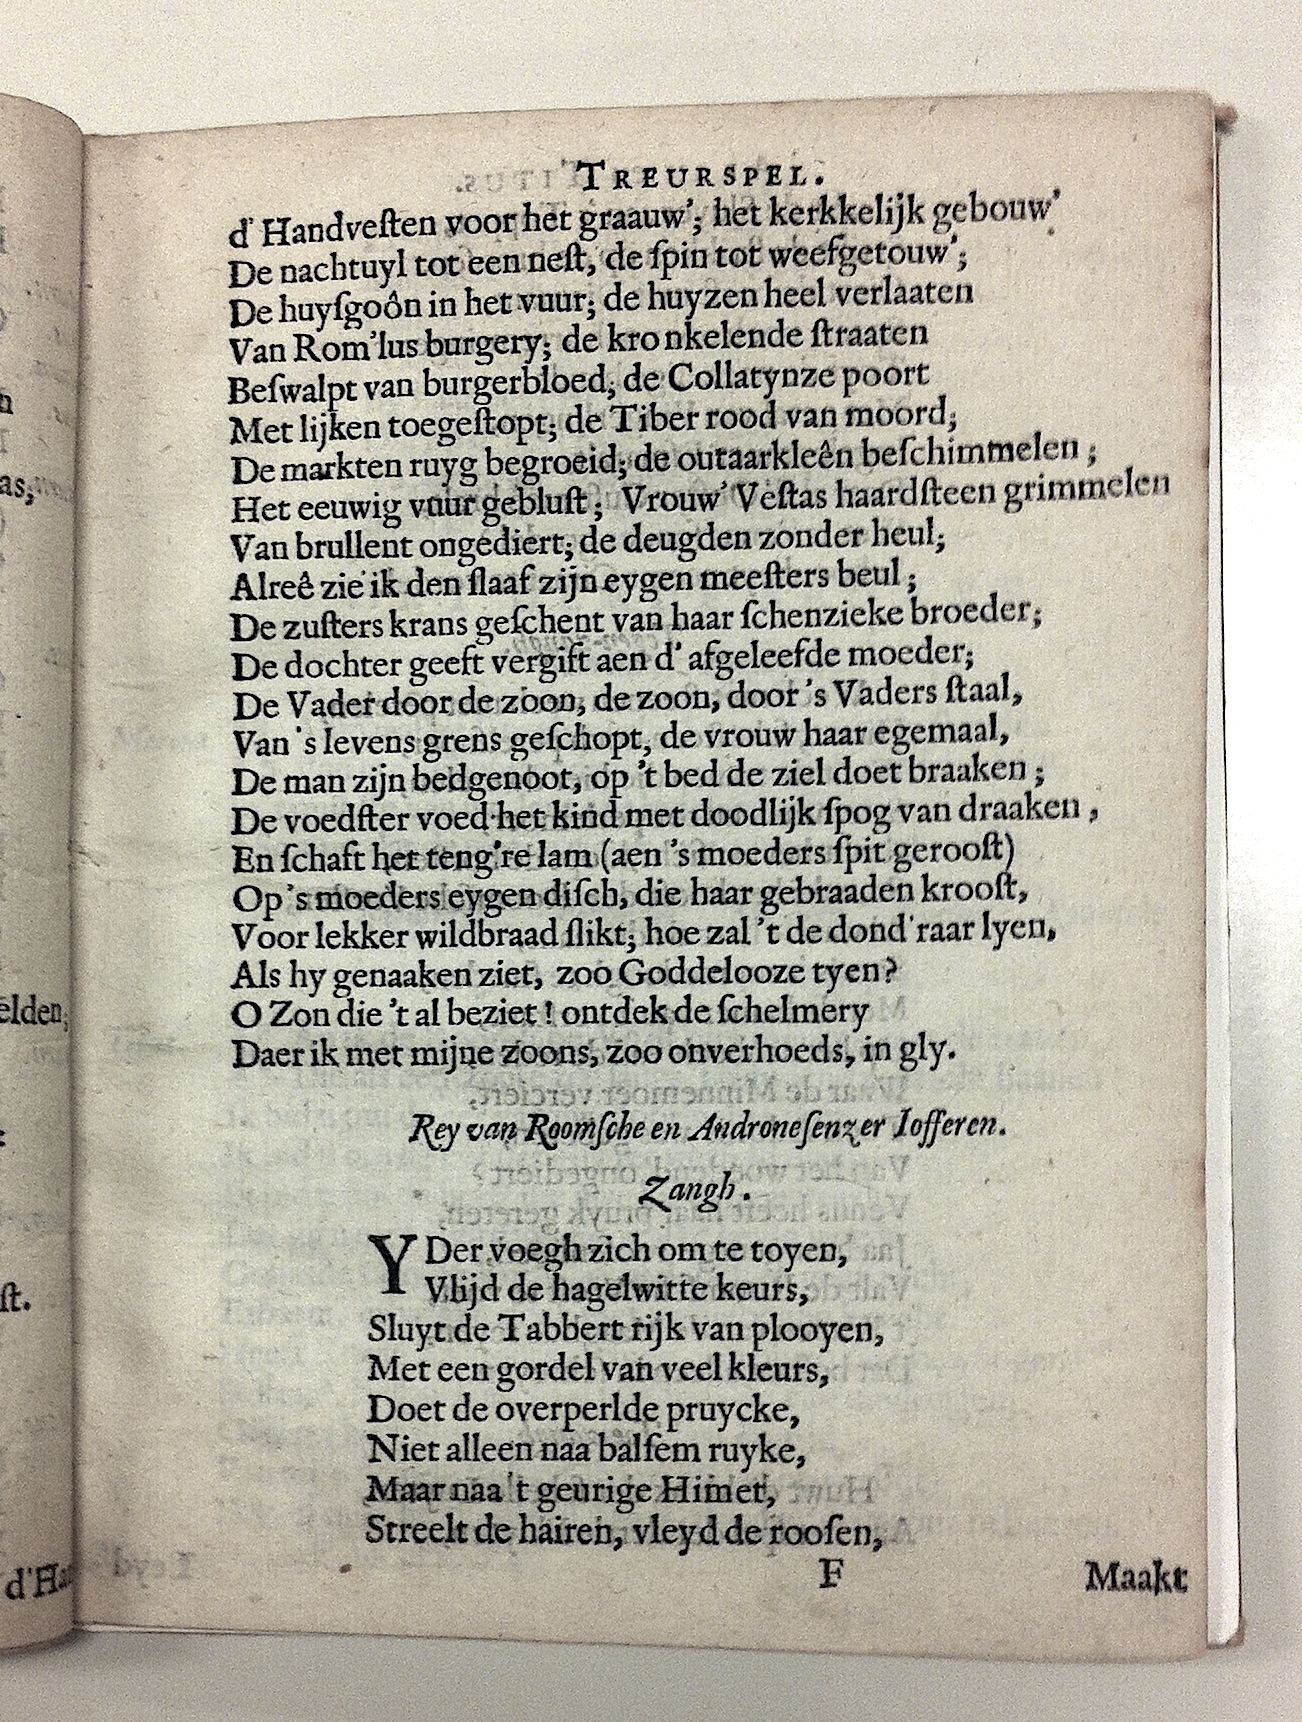 TREURSPEL.
d' Handveſten voor het graauw'; het kerkkelijk gebouw'
De nachtuyl tot een neſt, de ſpin tot weefgetouw';
De huyſgoôn in het vuur; de huyzen heel verlaaten
Van Rom'lus burgery; de kronkelende ſtraaten
Beſwalpt van burgerbloed; de Collatynze poort
Met lijken toegeſtopt; de Tiber rood van moord;
De markten ruyg begroeid; de outaarkleên beſchimmelen;
Het eeuwig vuur gebluſt; Vrouw' Veſtas haardſteen grimmelen
Van brullent ongediert; de deugden zonder heul;
Alreê zie ik den ſlaaf zijn eygen meeſters beul;
De zuſters krans geſchent van haar ſchenzieke broeder;
De dochter geeft vergift aen d' afgeleefde moeder;
De Vader door de zoon, de zoon, door 's Vaders ſtaal,
Van 's levens grens geſchopt, de vrouw haar egemaal,
De man zijn bedgenoot, op 't bed de ziel doet braaken;
De voedſter voed het kind met doodlijk ſpog van draaken,
En ſchaft het teng're lam (aen 's moeders ſpit gerooſt)
Op 's moeders eygen diſch, die haar gebraaden krooſt,
Voor lekker wildbraad ſlikt; hoe zal 't de dond'raar lyen,
Als hy genaaken ziet, zoo Goddelooze tyen?
O Zon die 't al beziet! ontdek de ſchelmery
Daer ik met mijne zoons, zoo onverhoeds, in gly.
Rey van Roomſche en Androneſenzer Iofferen.
Zangh.
YDer voegh zich om te toyen,
Vlijd de hagelwitte keurs,
Sluyt de Tabbert rijk van plooyen,
Met een gordel van veel kleurs,
Doet de overperlde pruycke,
Niet alleen naa balſem ruyke,
Maar naa 't geurige Himet,
Streelt de hairen, vleyd de rooſen,
F
Maakt
as,
elden;
ſt.
d'Ha